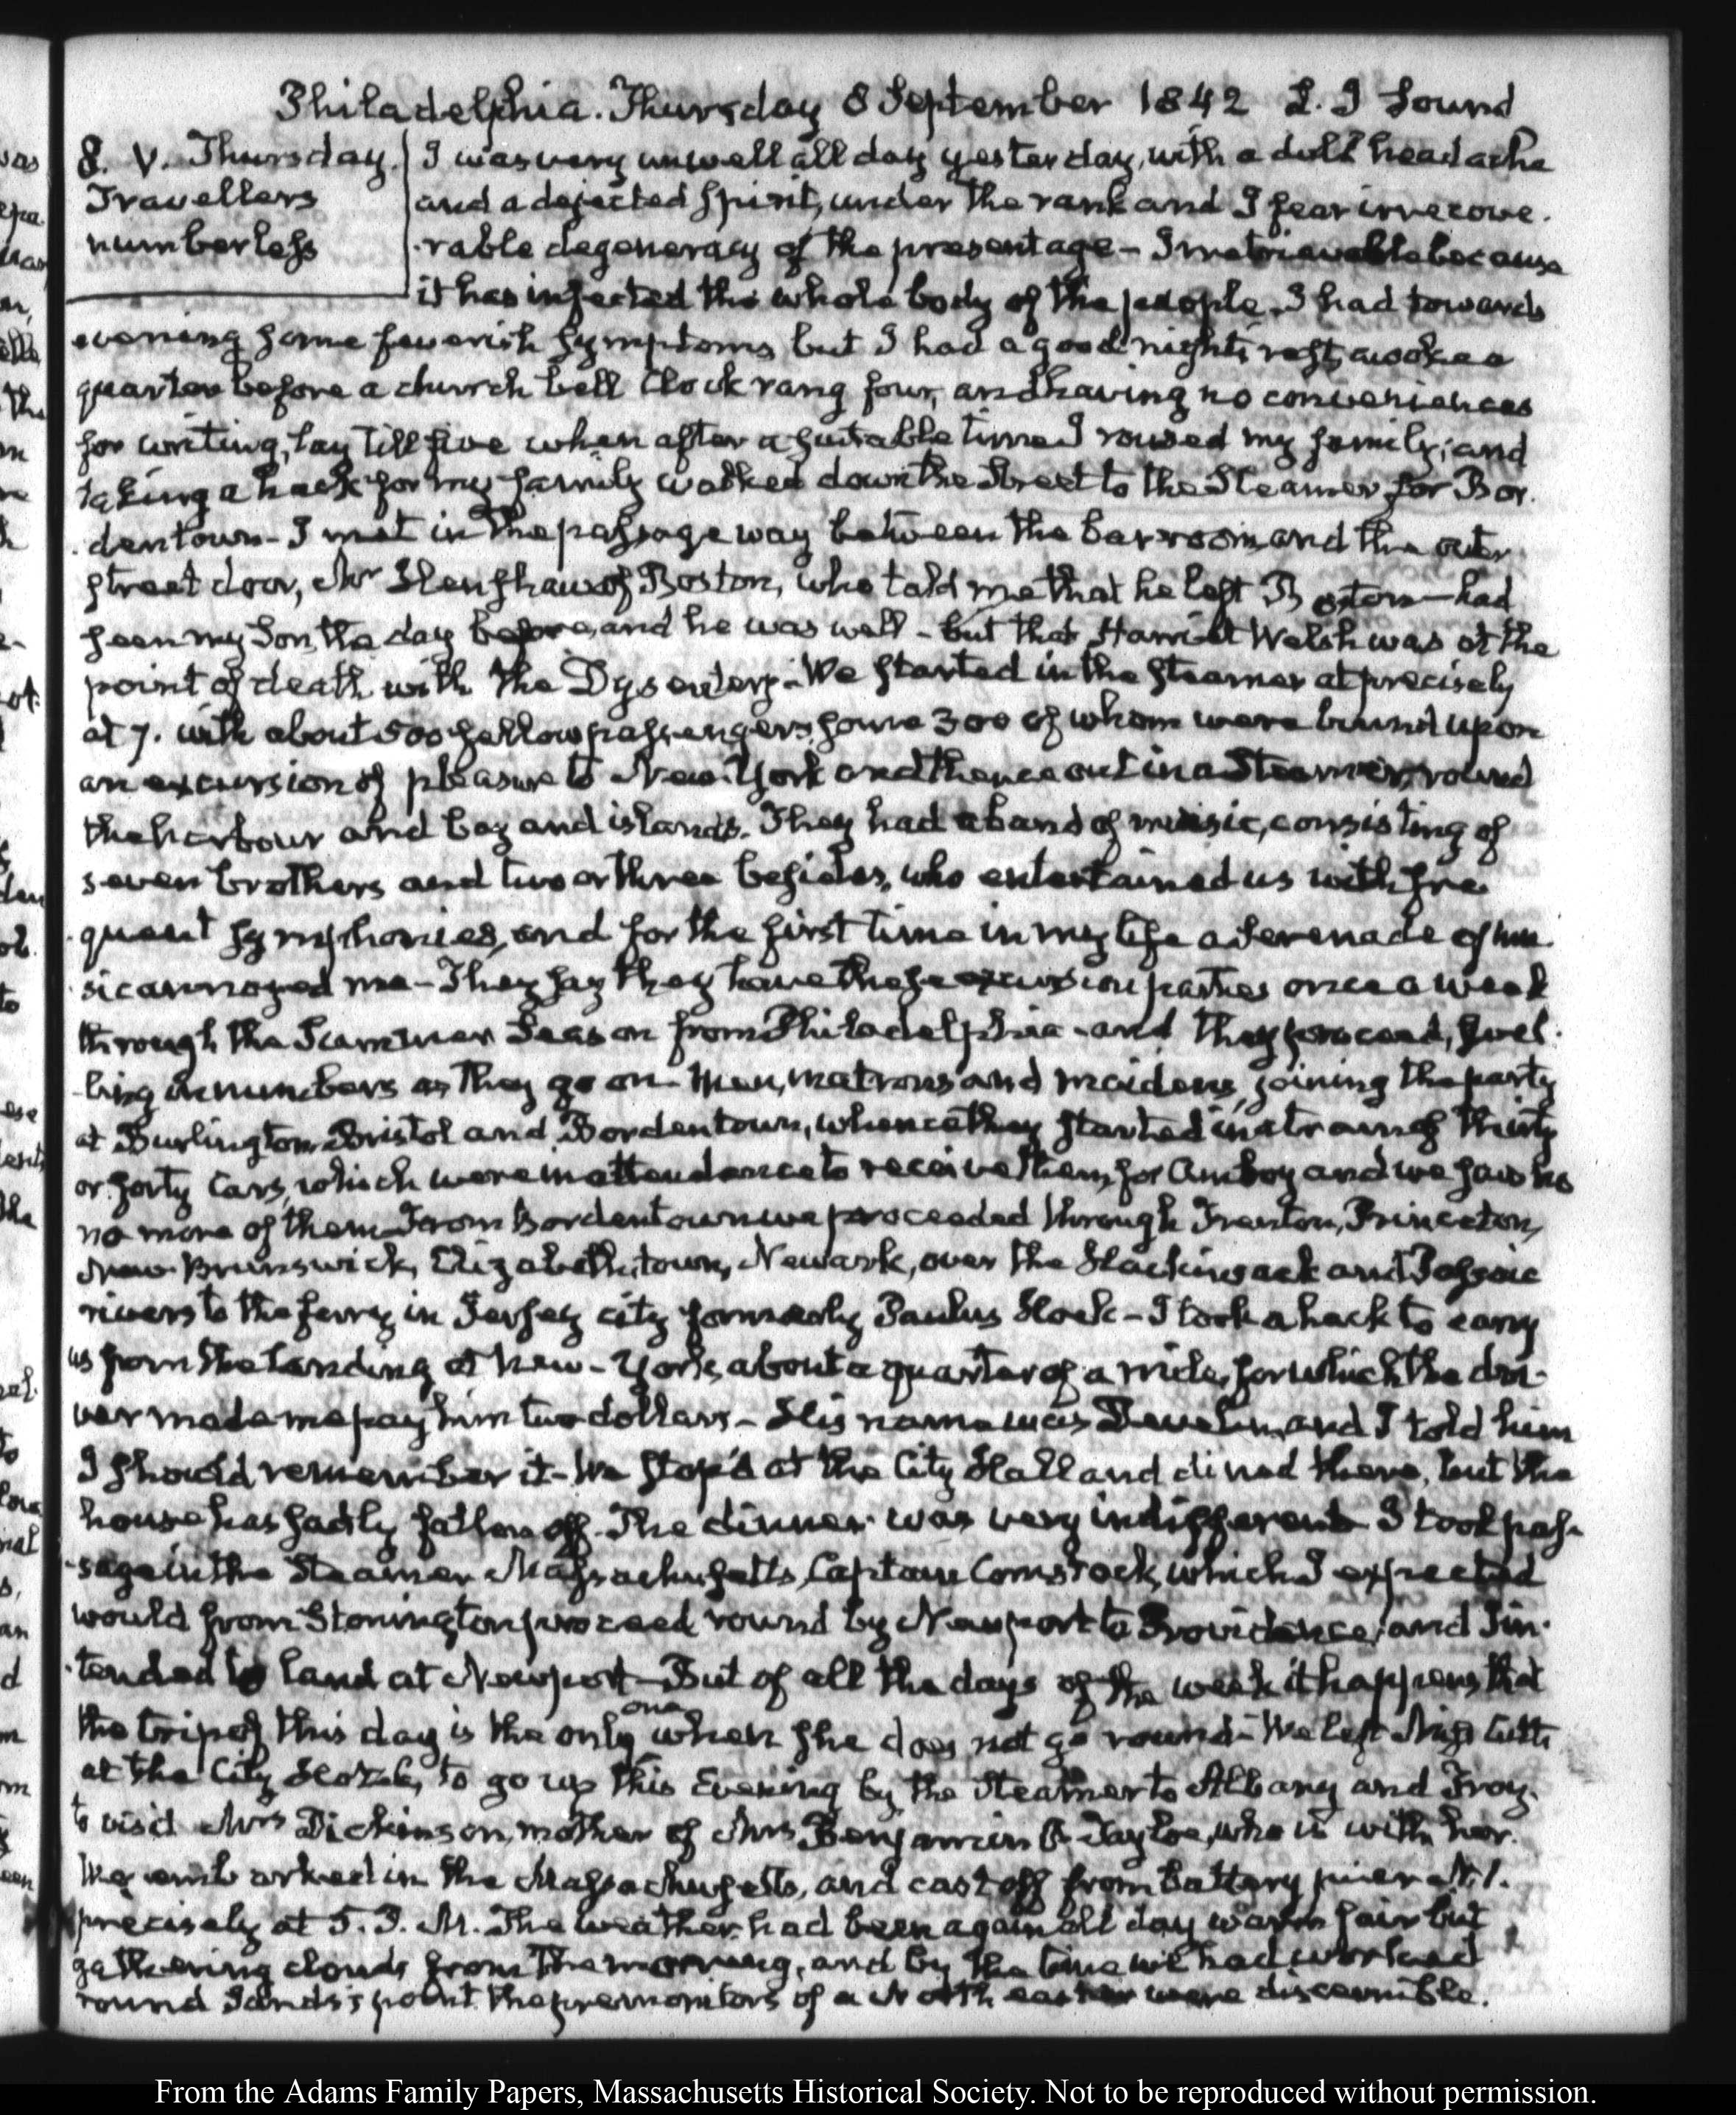 Philadelphia. Thursday 8 September 1842 L. I Sound
8. V. Thursday.
Travellers
numberless
I was very unwell all day yesterday, with a dull headache
and a dejected Spirit, under the rank and I fear irrecove-
-rable degeneracy of the present age - Irretrievable because
it has infected the whole body of the people. I had towards
evening some feverish symptoms but I had a good night's rest, awoke a
quarter before a church bell Clock rang four, and having no conveniences
for writing, lay till five when after a suitable time I roused my family; and
taking a hack for my family walked down the Street to the Steamer for Bor-
-dentown - I met in the passage way between the bar room and the outer
street door, Mr Henshaw of Boston, who told me that he left Boston - had
seen my Son, the day before, and he was well - but that Harriet Welsh was at the
point of death with the Dysentery - We started in the steamer at precisely
at 7. with about 500 fellow passengers, some 300 of whom were bound upon
an excursion of pleasure to New-York and thence out in a Steamer, round
the harbour and bay and islands. They had a band of music, consisting of
seven brothers and two or three besides, who entertained us with fre-
-quent symphonies, and for the first time in my life a Serenade of mu-
-sic annoyed me - They say they have these excursion parties once a week
through the Summer Season from Philadelphia - and they proceed, swel-
-ling in numbers as they go on - Men, matrons and maidens, joining the party
at Burlington Bristol and Bordentown, whence they started in a train of thirty
or forty Cars, which were in attendance to receive them, for Amboy and we saw
no more of them - From Bordentown we proceeded through Trenton, Princeton,
New-Brunswick, Elizabeth-town, Newark, over the Hackinsack and Passaic
rivers to the ferry in Jersey city formerly Paulus Hook - I took a hack to carry
us from the landing at New-York, about a quarter of a mile, for which the dri-
ver made me pay him two dollars - His name was Develin, and I told him
I should remember it - We stop'd at the City Hall and dined there, but the
house has sadly fallen off. The dinner was very indifferent I took pas-
-sage in the Steamer Massachusetts, Captain Comstock, which I expected
would from Stonington proceed round by Newport to Providence, and I in-
-tended to land at Newport - But of all the days of the week it happens that
the trip of this day is the only one when she does not go round - We left Miss Cutts
at the City Hotel, to go up this Evening by the Steamer to Albany and Troy.
to visit Mrs Dickinson, mother of Mrs Benjamin O. Tayloe, who is with her.
We embarked in the Massachusetts, and cast off from battery pier N. 1.
precisely at 5. P. M. The weather had been again all day warm fair but
gathering clouds from the morning, and by the time we had worked
round Sands's point the premonitors of a North easter were discernible.
From the Adams Family Papers, Massachusetts Historical Society. Not to be reproduced without permission.